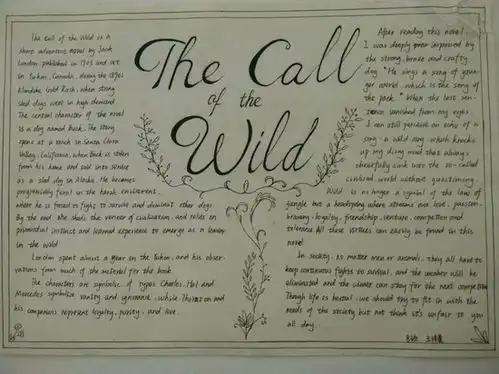 The Call
of the
Wild
The Call of the Wild is a
short adventure novel by Jack
London published in 1903 and set
in Yukon, Canada, during the 1890s
Klondike Gold Rush, when strong
sled dogs were in high demand
The central character of the novel
is a dog named Buck. The story
opens at a ranch in Santa Clara
Valley, California, when Buck is stolen
from his home and sold into service
as a sled dog in Alaska. He becomes
progressively feral in the harsh environment,
where he is forced to fight to survive and dominate other dogs
By the end, he sheds the veneer of civilization, and relies on
primordial instinct and learned experience to emerge as a leader
in the wild
London spent almost a year in the Yukon, and his obser-
vations form much of the material for the book
The characters are symbolic of types. Charles, Hal and
Mercedes symbolize vanity and ignorance, while Thornton and
his companions represent loyalty, purity, and love.
After reading this novel,
I was deeply impressed by
the strong, brave and crafty
dog "He sings a song of youn-
ger world, which is the song of
the pack." When the last sen-
tence vanished from my eyes
I can still perceive an echo of a
song - a wild song which knocks
up my dling mind that always
cheerfully sink into the so-called
civilized world without questioning.
Wild is no longer a symbol of the law of
jungle but a headspring where streams out love, passion,
bravery, loyalty, friendship, venture, competition and
tolerance. All these virtues can easily be found in this
novel
In society, no matter men or animals, they all have to
keep continuous fights to survival, and the weaker will be
eliminated and the winner can stay for the next competition
Though life is bestial, we should try to fit in with the
needs of the society but not think it's unfair to you
all day.